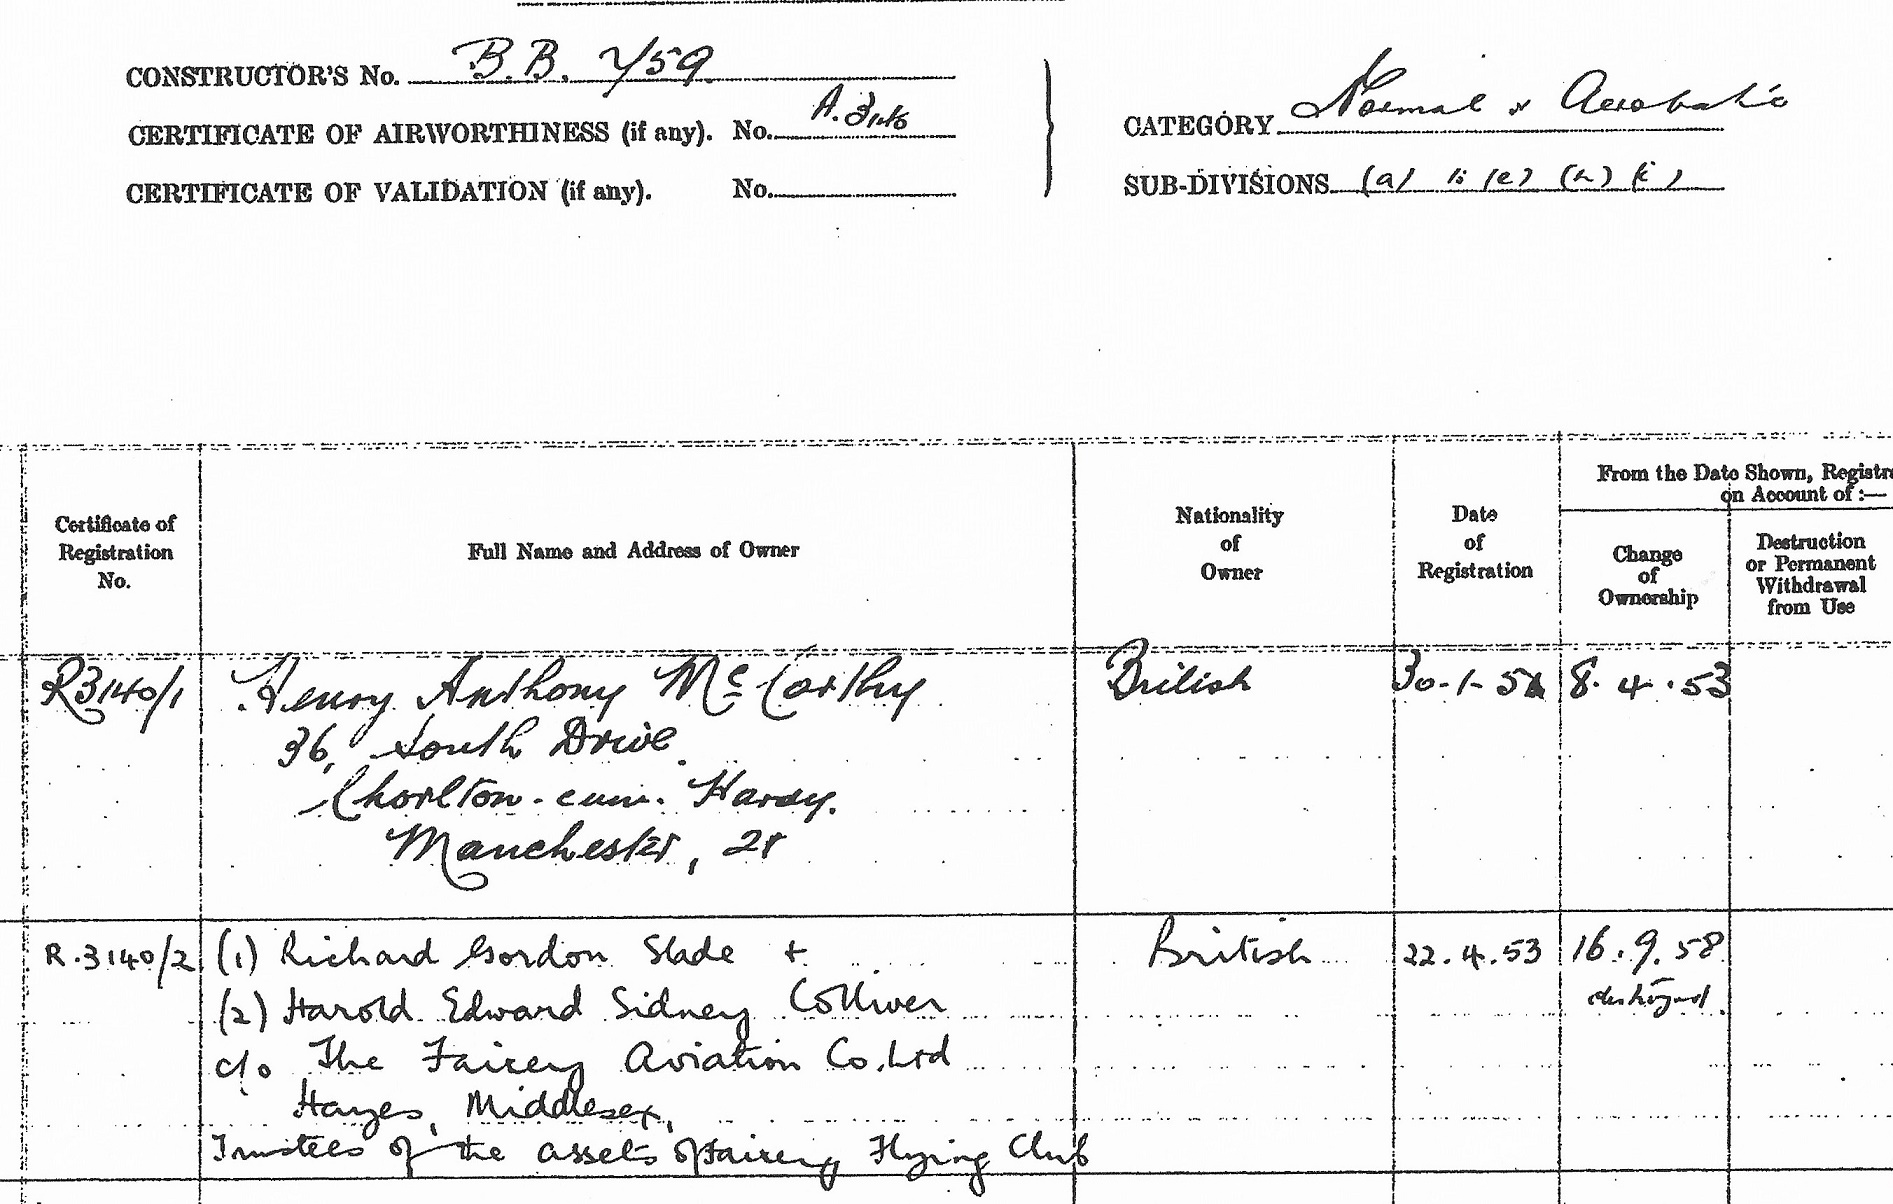 CONSTRUCTOR'S No. B.B. 7/59
CERTIFICATE OF AIRWORTHINESS (if any). No. A.3146
CERTIFICATE OF VALIDATION (if any). No.
CATEGORY Normal & Aerobatic
SUB-DIVISIONS (a) b (e) (h) (i)
Certificate of Registration No.
Full Name and Address of Owner
Nationality of Owner
Date of Registration
From the Date Shown, Registr
on Account of :—
Change of Ownership
Destruction or Permanent Withdrawal from Use
R3140/1 Henry Anthony McCarthy British 30-1-52 8.4.53
36, South Drive
Chorlton-cum-Hardy.
Manchester, 21
R.3140/2 (1) Richard Gordon Slade + British 22.4.53 16.9.58
(2) Harold Edward Sidney Colliver destroyed
c/o The Fairey Aviation Co. Ltd
Hayes, Middlesex,
Trustees of the assets of Fairey Flying Club